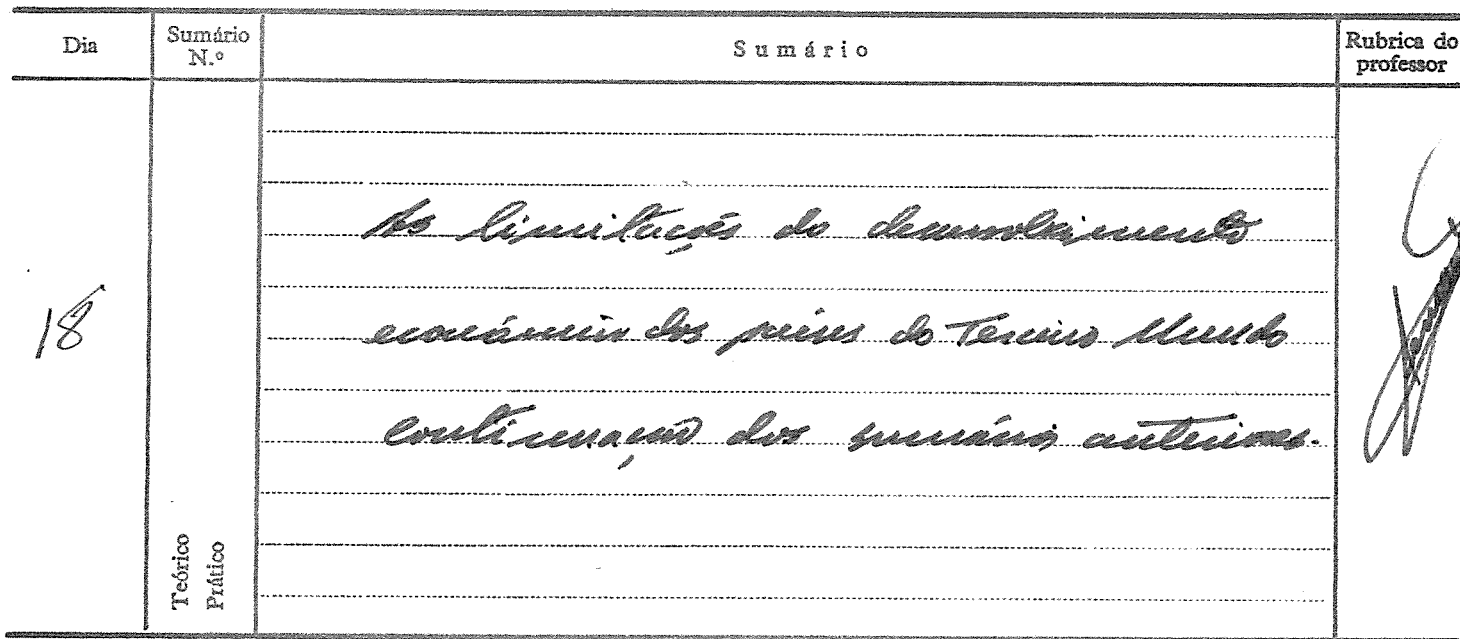 Dia
Sumário
N.º
Sumário
Rubrica do
professor
18
As limitações do desenvolvimento
económico dos países do Terceiro Mundo
continuação dos sumários anteriores.
Teórico
Prático